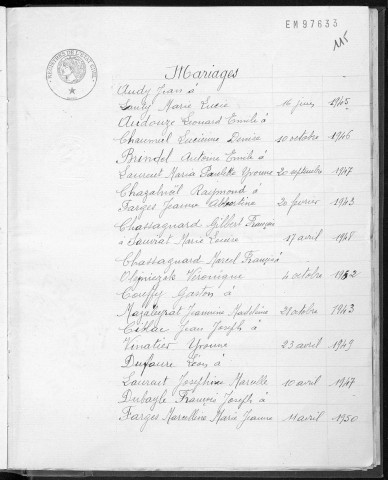 EM97633
115
REGISTRES DE L'ETAT CIVIL
Mariages
Audy Jean à
Sauty Marie Lucie 16 juin 1945
Audouze Léonard Emile à
Chaumeil Lucienne Denise 10 octobre 1946
Brindel Antoine Emile à
Laurent Maria Paulette Yvonne 20 septembre 1947
Chazalnoël Raymond à
Farges Jeanne Albertine 20 février 1943
Chassagnard Gilbert François
à Saurat Marie 17 avril 1948
Chassagnard Marcel François à
Olejniczak Véronique 4 octobre 19
Coreffy Gaston à
Mazaleyrat Jeannine Madeleine 28 octobre 1943
Jean Joseph à
Vinatier Yvonne 23 avril 1949
Dufaure Léon à
Laurart Joséphine Marcelle 10 avril 1947
Dubayle François Joseph à
Farges Marcelline Marie Jeanne 11 avril 1950